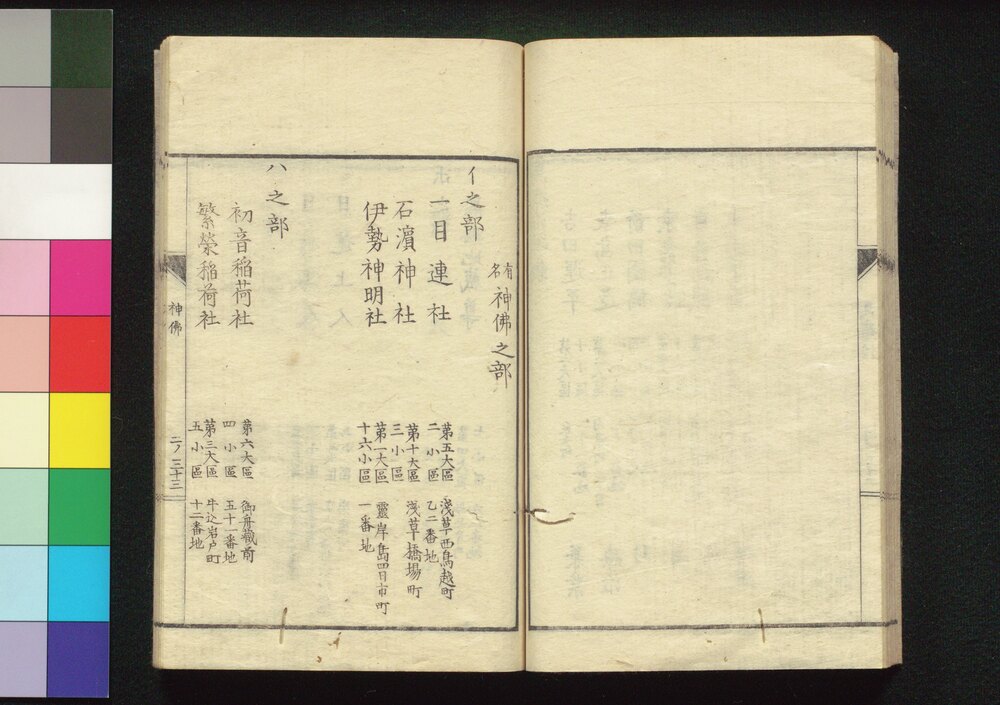 有名神佛之部
イ之部
一目連社 第五大區二小區 淺草西鳥越町乙二番地
石濵神社 第十大區三小區 淺草橋場町
伊勢神明社 第一大區十六小區 靈岸島四日市町一番地
ハ之部
初音稲荷社 第六大區四小區 御舟藏前五十一番地
繁榮稲荷社 第三大區五小區 牛込岩戸町十二番地
神佛
二ノ三十三